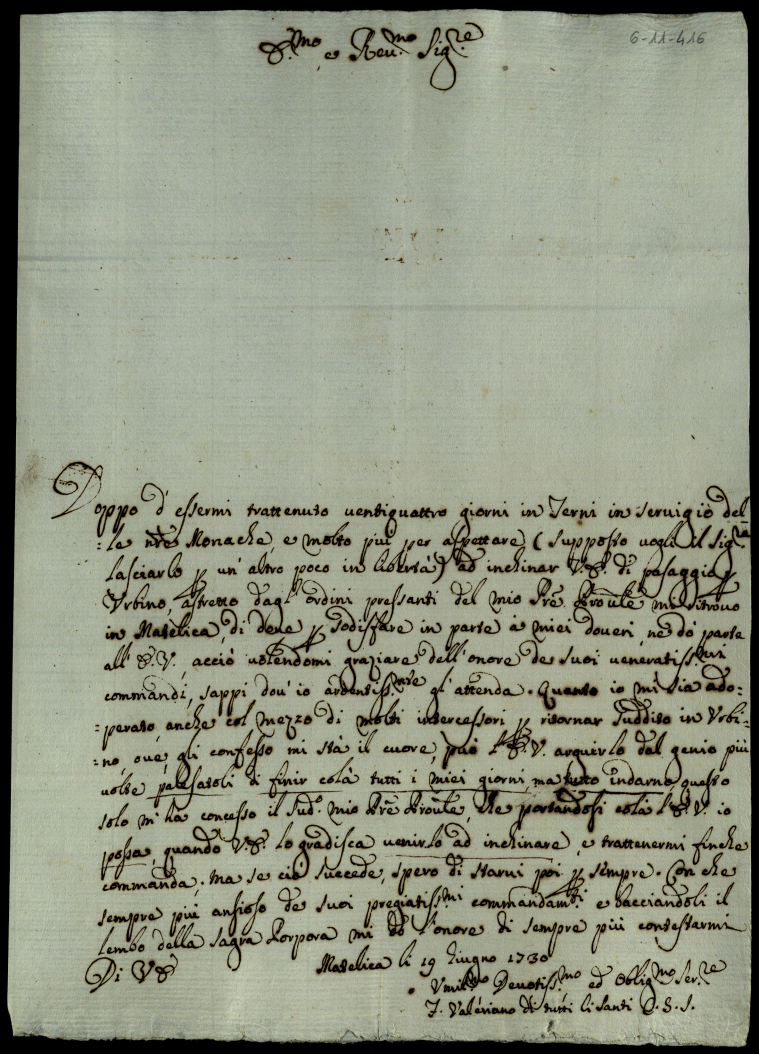 6-11-416
E.mo e Reu.mo Sig.re
Doppo d'essermi trattenuto uentiquattro giorni in Terni in seruigio del-
:le nre Monache, e molto piu per aspettare (supposto uogli il Sig.re
lasciarlo p un'altro poco in libertà) ad inchinar V.E. di passaggio p
Vrbino, astretto dagl'ordini pressanti del mio Pre Proule mi ritrouo
in Matelica, di doue p sodisfare in parte à miei doueri, ne dò parte
all'E.V., acciò uolendomi graziare dell'onore de suoi ueneratiss.mi
commandi, sappi dou'io ardentiss.mte gl'attenda. Quanto io mi sia ado=
=perato, anche col mezzo di molti intercessori p ritornar suddito in Vrbi=
=no, oue, gli confesso mi stà il cuore, può l'E.V. arguirlo dal genio più
uolte palesatoli di finir colà tutti i miei giorni, ma tutto indarno, questo
solo m'hà concesso il sud.o mio Pre Proule, che portandosi colà l'E.V. io
possa, quando V.E. lo gradisca uenirlo ad inchinare, e trattenermi finche
commanda. Ma se ciò succede, spero di starui poi p sempre. Con che
sempre più ansioso de suoi pregiatiss.mi commandam.ti e bacciandoli il
lembo della sagra Porpora mi dò l'onore di sempre più contestarmi
Di V.E.
Matelica li 19 Giugno 1730
Vmil.mo Deuotiss.mo ed Oblig.mo Ser.re
F. Valeriano di tutti li Santi C. S.